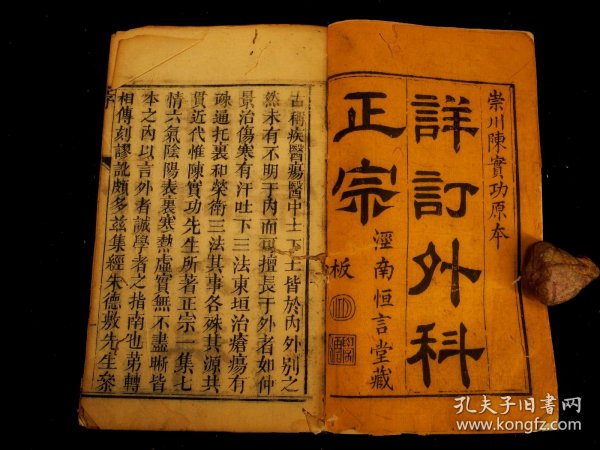 崇川陳實功原本
詳訂外科
正宗
涇南恒言堂藏
板
古稱疾醫瘍醫中士下士皆於內外別之
然未有不明于內而可擅長于外者如仲
景治傷寒有汗吐下三法東垣治瘡瘍有
疎通托裏和榮衛三法其事各殊其源共
貫近代惟陳實功先生所著正宗一集七
情六氣陰陽表裏寒熱虛實無不盡晰皆
本之內以言外者誠學者之指南也第轉
相傳刻謬訛頗多茲集經朱德敷先生叅
序
孔夫子旧书网
www.kongfz.com